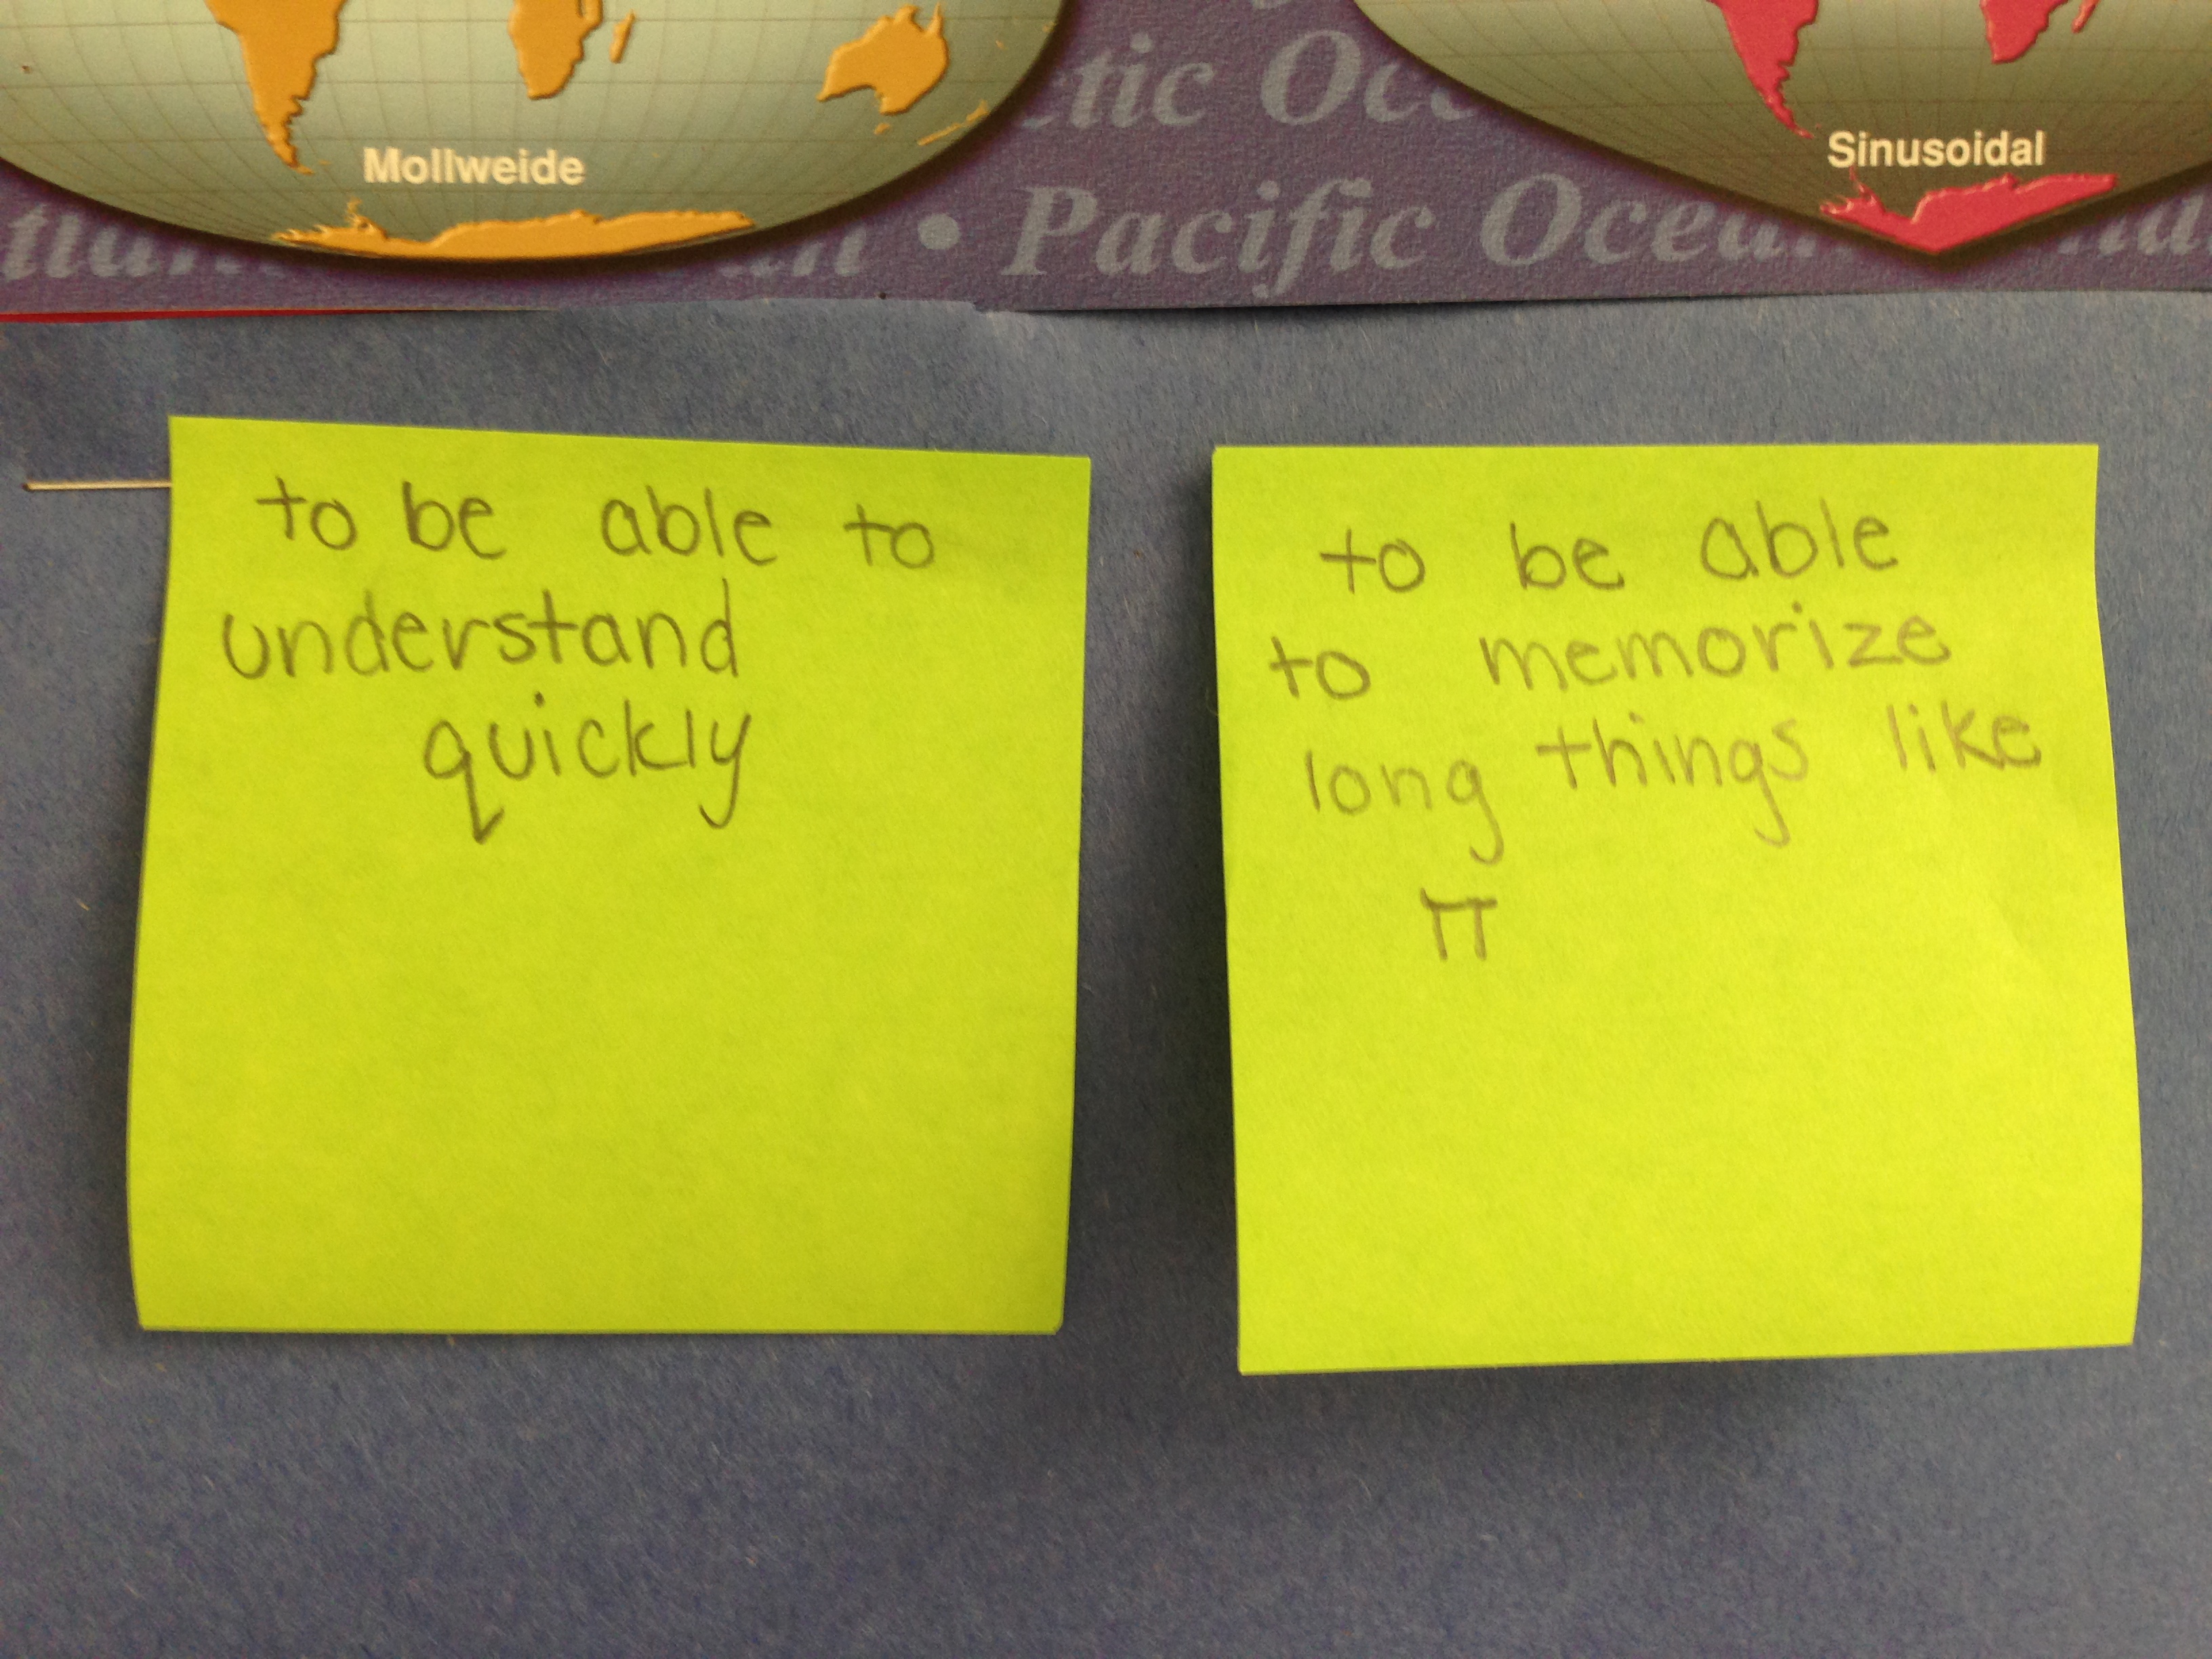 Mollweide
Sinusoidal
• Pacific
to be able to
understand
quickly
to be able
to memorize
long things like
π